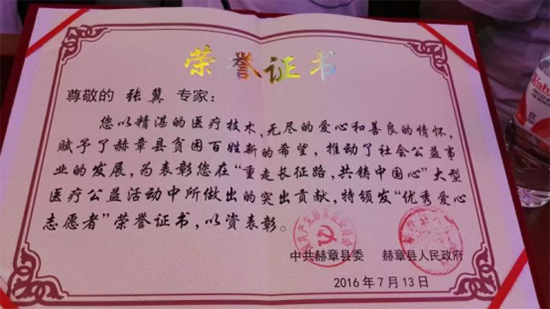 荣誉证书
尊敬的 张冀 专家：
您以精湛的医疗技术，无尽的爱心和善良的情怀，
赋予了赫章县贫困百姓新的希望，推动了社会公益事
业的发展，为表彰您在“重走长征路，共铸中国心”大型
医疗公益活动中所做出的突出贡献，特颁发“优秀爱心
志愿者”荣誉证书，以资表彰。
中共赫章县委 赫章县人民政府
2016年7月13日